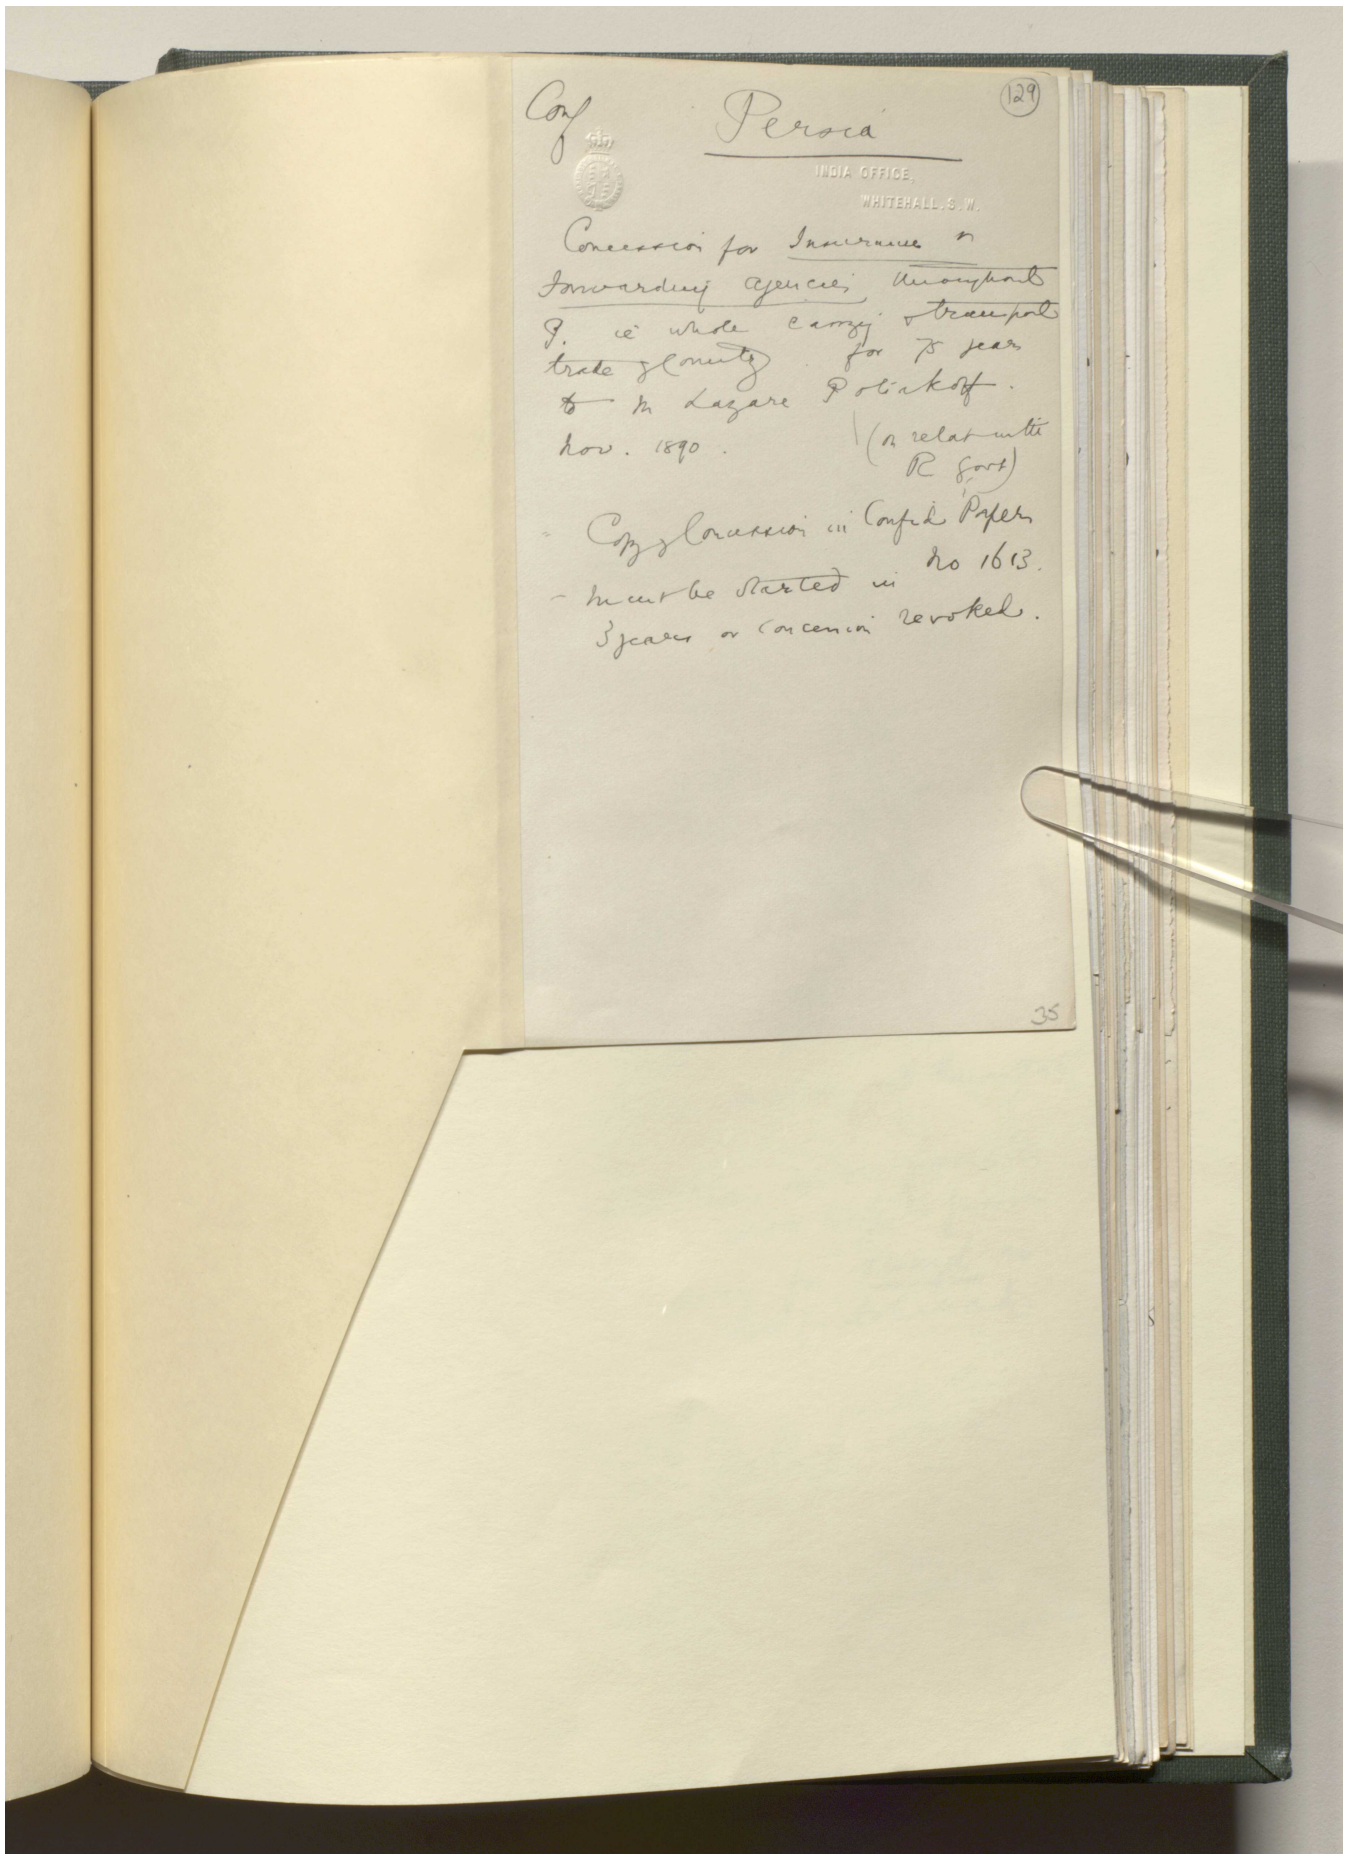 129
Conf
Persia
INDIA OFFICE,
WHITEHALL. S. W.
Concession for Insurance &
Forwarding agencies throughout
P. ie whole carrying & transport
trade of Country for 75 years
to M Lazare Poliakoff.
Nov. 1890.
(in relat with
R Govt)
Copy of Concession in Confid Papers
No 1613.
- Must be started in
3 years or concession revoked.
35